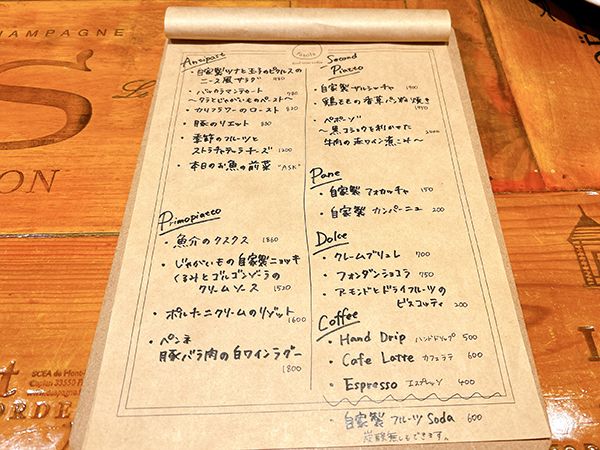 Antipast
・自家製ツナと玉子のピクルスの
ニース風サラダ 980
・バッカラマンテカート 780
〜タラとじゃがいものペースト〜
・カリフラワーのロースト 820
・豚のリエット 880
・季節のフルーツと
ストラチャテーラチーズ 1200
・本日のお魚の前菜 "ASK"
Primopiatto
・魚介のクスクス 1860
・じゃがいもの自家製ニョッキ
くるみとゴルゴンゾーラの
クリームソース 1520
・ポルチーニクリームのリゾット
1600
・ペンネ
豚バラ肉の白ワインラグー
1800
Second
Piatto
自家製サルシッチャ 1900
鶏ももの香草パン粉焼き
・ペポーゾ
〜黒コショウを利かせた
牛肉の赤ワイン煮こみ〜
Pane
・自家製フォカッチャ 150
・自家製カンパーニュ 200
Dolce
・クレームブリュレ 700
・フォンダンショコラ 750
・アーモンドとドライフルーツの
ビスコッティ 200
Coffee
・Hand Drip ハンドドリップ 500
・Cafe Latte カフェラテ 600
・Espresso エスプレッソ 400
・自家製フルーツSoda 600
炭酸無しもできます。
CHAMPAGNE
S
ION
SCEA de Mont-
ORDE